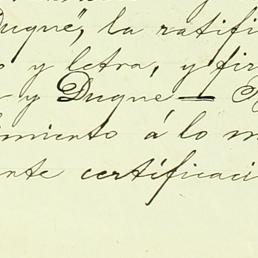 Duque", la ratifi
o y letra, y fir
y Duque —
imiento á lo m
nte certificaci